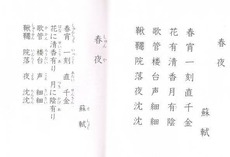 春夜
蘇軾
春宵一刻直千金
花有清香月有陰
歌管楼台声細細
鞦韆院落夜沈沈
春夜
蘇軾
春宵一刻直千金
花に清香有り月に陰有り
歌管楼台声細細
鞦韆院落夜沈沈